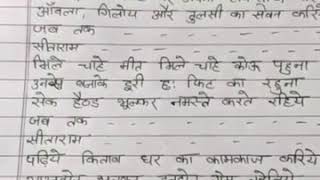 आँवला, गिलोय और तुलसी का सेवन करिये
जब तक
सीताराम
मिले चाहे मीत मिले चाहे कोऊ पहुना
उनसे बनाके दूरी ह: फिट का रहुना
सेक हैण्ड भूलकर नमस्ते करते रहिये
जब तक
सीताराम
पढ़िये किताब घर का कामकाज करिये